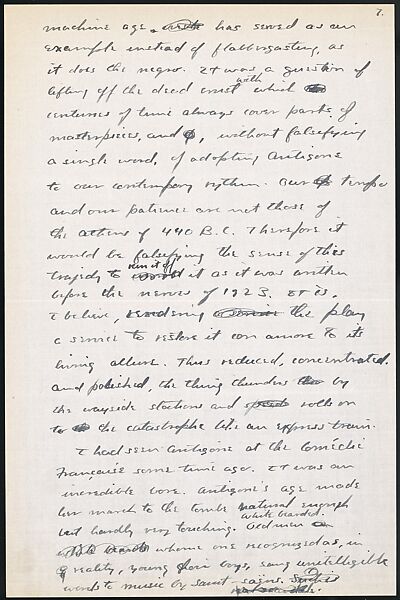 7.
machine age, has served as an
example instead of flabbergasting, as
it does the negro. It was a question of
lifting off the dead crust with which
centuries of time always cover parts of
masterpieces, and, without falsifying
a single word, of adapting Antigone
to our contempory rythm. Our tempo
and our patience are not those of
the Athens of 440 B.C. Therefore it
would be falsifying the sense of this
tragedy to run it off it as it was written
before the nerves of 1923. It is,
I believe, rendering the play
a service to restore it con amore to its
living allure. Thus reduced, concentrated
and polished, the thing thunders by
the wayside stations and rolls on
to the catastrophe like an express train.
I had seen Antigone at the Comédie
Française some time ago. It was an
incredible bore. Antigone's age made
her march to the tomb natural enough
but hardly very touching. Old men white bearded
whom one recognized as, in
reality, young choir boys, sang unintelligible
words to music by Saint-Saëns.